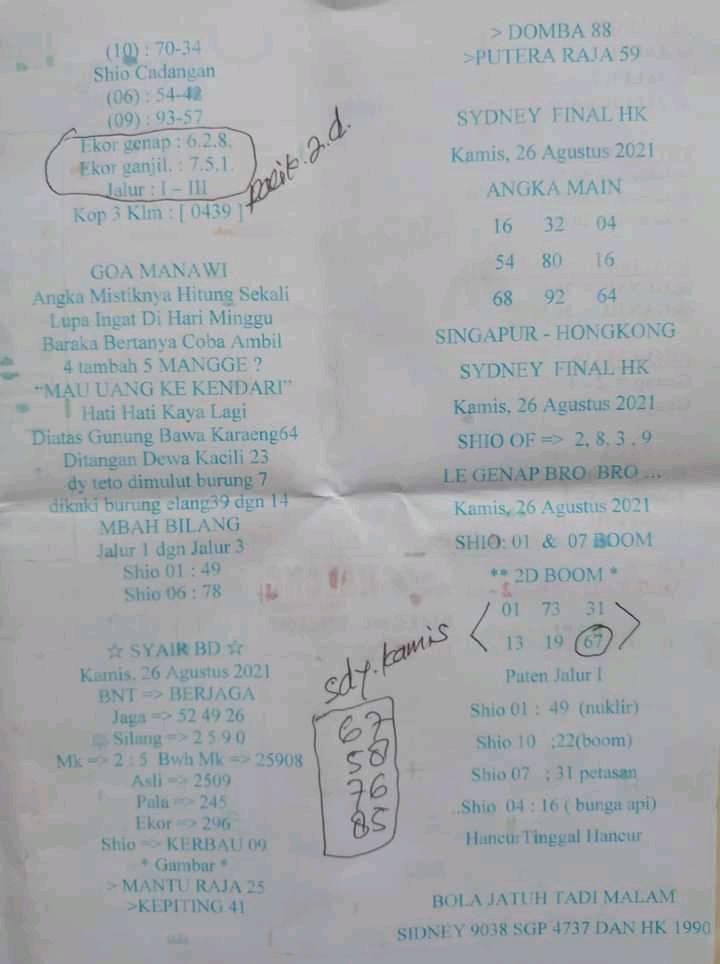 (10) : 70-34
Shio Cadangan
(06) : 54-42
(09) : 93-57
Ekor genap : 6.2.8.
Ekor ganjil. : 7.5.1.
Jalur : I – III
Kop 3 Klm : [ 0439 ]
2.d.
GOA MANAWI
Angka Mistiknya Hitung Sekali
Lupa Ingat Di Hari Minggu
Baraka Bertanya Coba Ambil
4 tambah 5 MANGGE ?
“MAU UANG KE KENDARI”
Hati Hati Kaya Lagi
Diatas Gunung Bawa Karaeng64
Ditangan Dewa Kacili 23
dy teto dimulut burung 7
dikaki burung elang39 dgn 14
MBAH BILANG
Jalur 1 dgn Jalur 3
Shio 01 : 49
Shio 06 : 78
☆ SYAIR BD ☆
Kamis, 26 Agustus 2021
BNT => BERJAGA
Jaga => 52 49 26
Silang => 2 5 9 0
Mk => 2 : 5 Bwh Mk => 25908
Asli => 2509
Pala => 245
Ekor => 296
Shio => KERBAU 09
* Gambar *
> MANTU RAJA 25
>KEPITING 41
sdy.kamis
67
58
76
85
> DOMBA 88
>PUTERA RAJA 59
SYDNEY FINAL HK
Kamis, 26 Agustus 2021
ANGKA MAIN
16 32 04
54 80 16
68 92 64
SINGAPUR - HONGKONG
SYDNEY FINAL HK
Kamis, 26 Agustus 2021
SHIO OF => 2, 8, 3 . 9
LE GENAP BRO BRO ...
Kamis, 26 Agustus 2021
SHIO: 01 & 07 BOOM
** 2D BOOM *
01 73 31
13 19 67
Paten Jalur I
Shio 01 : 49 (nuklir)
Shio 10 :22(boom)
Shio 07 : 31 petasan
..Shio 04 : 16 ( bunga api)
HancurTinggal Hancur
BOLA JATUH TADI MALAM
SIDNEY 9038 SGP 4737 DAN HK 1990